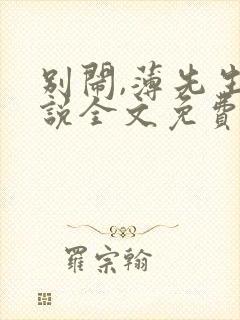 別鬧,薄先生
說全文免費
羅宗翰